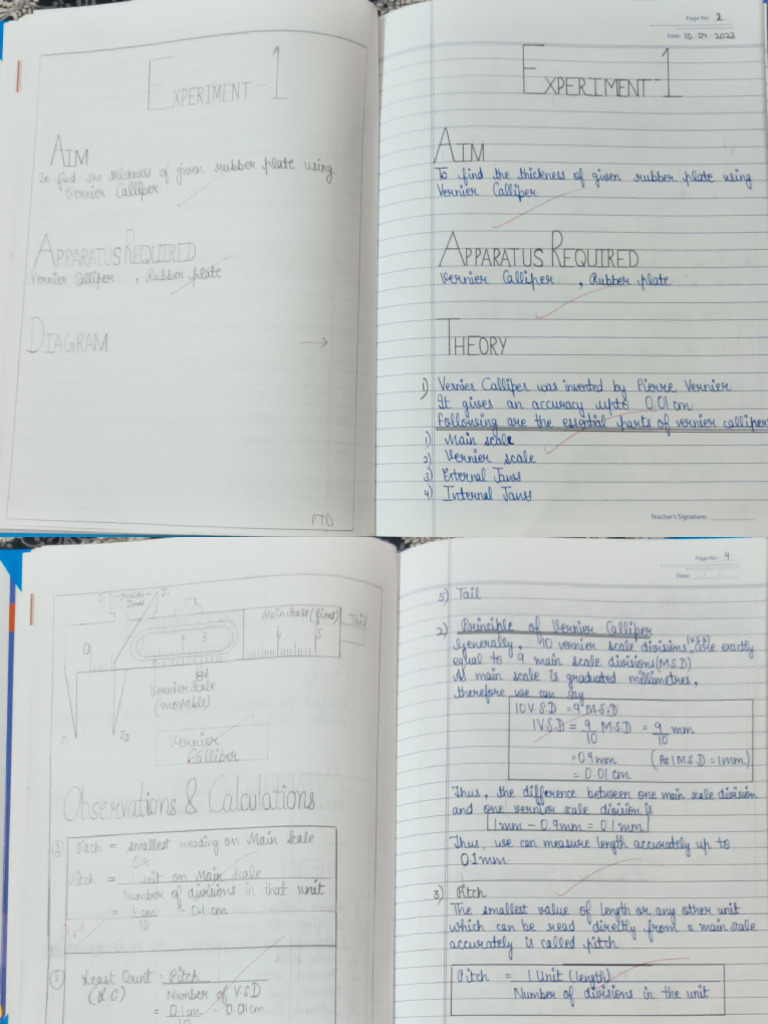 EXPERIMENT-1
AIM
To find the thickness of given rubber plate using
Vernier Calliper
APPARATUS REQUIRED
Vernier Calliper , Rubber plate
DIAGRAM →
PTO
Page No: 2
Date: 10.04.2023
EXPERIMENT-1
AIM
To find the thickness of given rubber plate using
Vernier Calliper.
APPARATUS REQUIRED
Vernier Calliper , Rubber plate
THEORY
1) Vernier Calliper was invented by Pierre Vernier
It gives an accuracy upto 0.01 cm
Following are the essential parts of vernier calliper
1) Main scale
2) Vernier scale
3) External Jaws
4) Internal Jaws
Teacher's Signature:
Inside-
Jaws
Main Scale (fixed)
Tail
0
5
Vernier Scale
(movable)
J1
J2
Vernier
Calliper
Observations & Calculations
① Pitch = smallest reading on Main Scale
OR
Pitch = 1 unit on Main Scale
Number of divisions in that unit
= 1 cm = 0.1 cm
10
② Least Count = Pitch
(L.C) Number of V.S.D
= 0.1cm = 0.01cm
10
Page No: 4
Date:
5) Tail
2) Principle of Vernier Calliper
Generally, 10 vernier scale divisions (V.S.D) are exactly
equal to 9 main scale divisions (M.S.D)
As main scale is graduated millimetres,
therefore we can say
10 V.S.D = 9 M.S.D
1 V.S.D = 9 M.S.D = 9 mm
10 10
= 0.9 mm (As 1 M.S.D = 1mm)
= 0.01 cm
Thus, the difference between one main scale division
and one vernier scale division is
1mm - 0.9mm = 0.1mm
Thus, we can measure length accurately up to
0.1mm.
3) Pitch
The smallest value of length or any other unit
which can be read directly from a main scale
accurately is called pitch
Pitch = 1 Unit (length)
Number of divisions in the unit